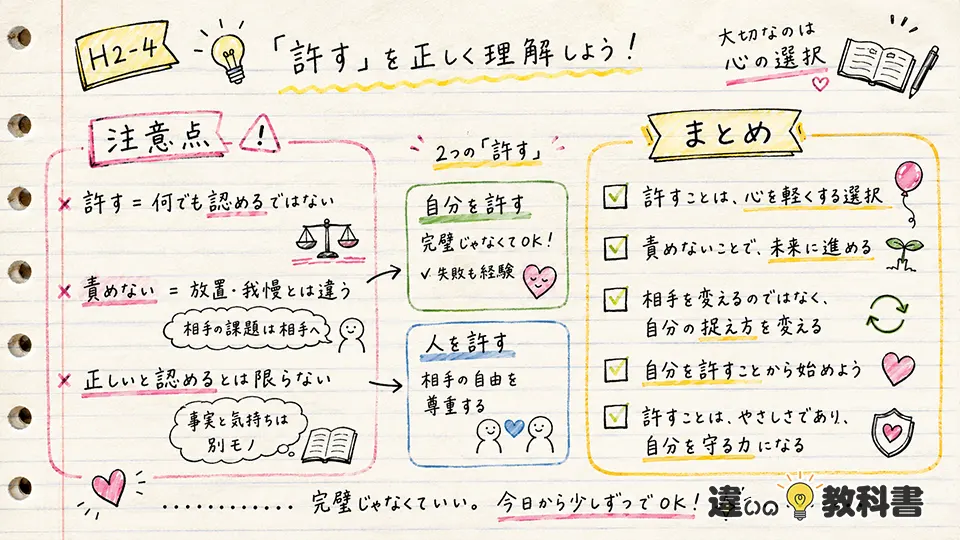 H2-4
「許す」を正しく理解しよう!
大切なのは
心の選択
注意点
!
× 許す = 何でも認めるではない
× 責めない = 放置・我慢とは違う
相手の課題は相手へ
× 正しいと認めるとは限らない
事実と気持ちは
別モノ
2つの「許す」
自分を許す
完璧じゃなくてOK!
✓ 失敗も経験
人を許す
相手の自由を
尊重する
まとめ
許すことは、心を軽くする選択
責めないことで、未来に進める
相手を変えるのではなく、
自分の捉え方を変える
自分を許すことから始めよう
許すことは、やさしさであり、
自分を守る力になる
............ 完璧じゃなくていい。 今日から少しずつでOK!
違いの教科書